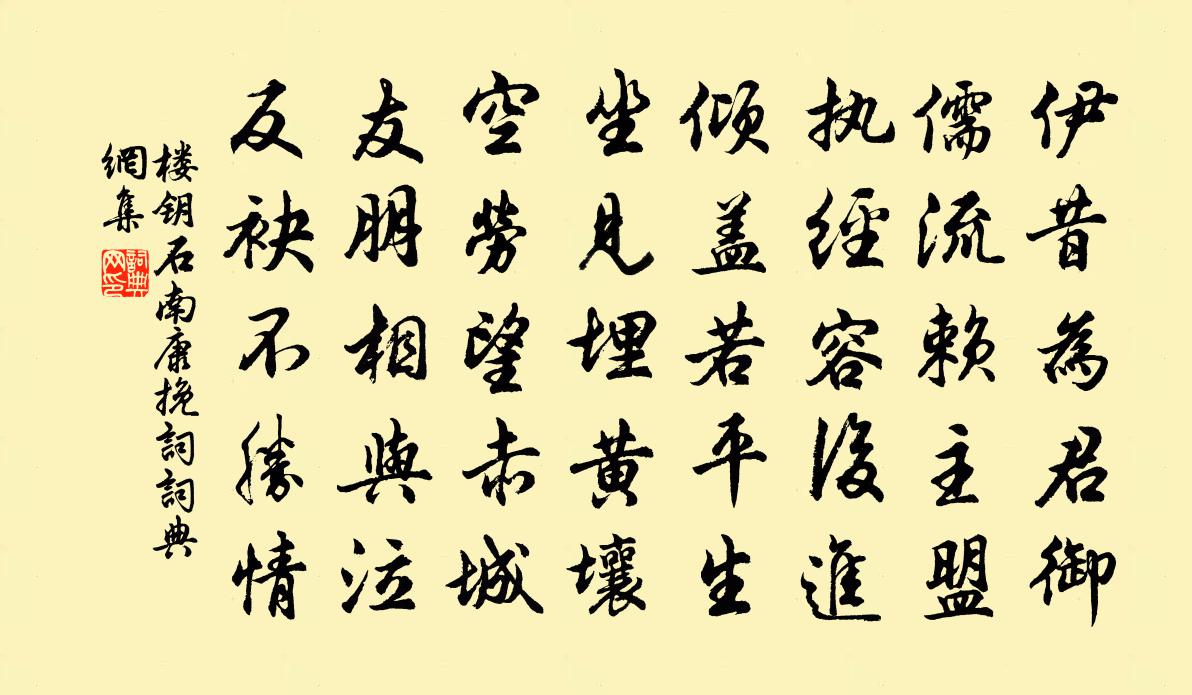 伊昔為君御
儒流赖主盟
执經容後進
倾盖若平生
坐見埋黄壤
空勞望赤城
友朋相與泣
反袂不勝情
楼钥石南康挽詞詞典
網集
詞典
网印